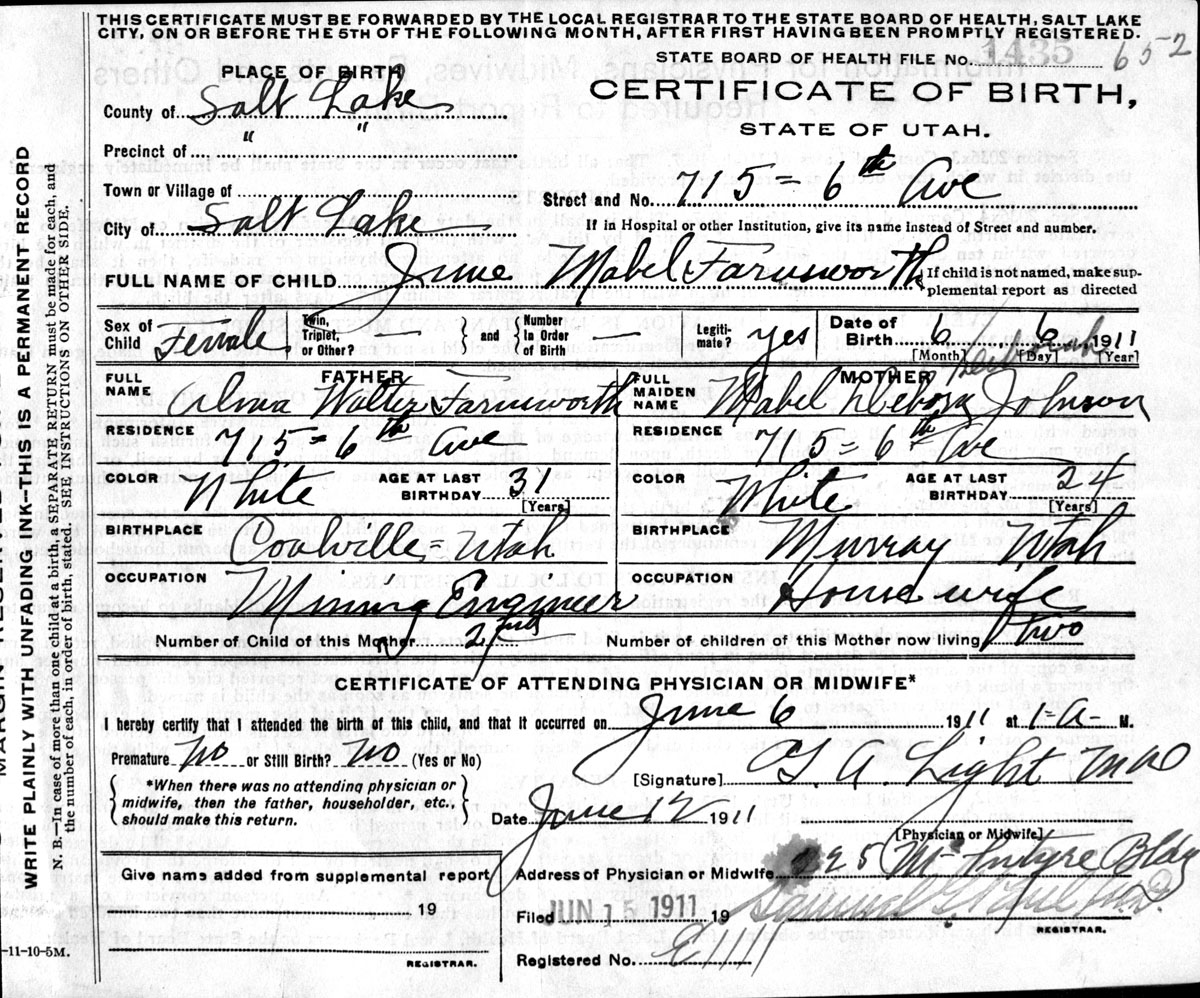 THIS CERTIFICATE MUST BE FORWARDED BY THE LOCAL REGISTRAR TO THE STATE BOARD OF HEALTH, SALT LAKE
CITY, ON OR BEFORE THE 5TH OF THE FOLLOWING MONTH, AFTER FIRST HAVING BEEN PROMPTLY REGISTERED.
STATE BOARD OF HEALTH FILE No. 1435 652
PLACE OF BIRTH
CERTIFICATE OF BIRTH,
STATE OF UTAH.
County of Salt Lake
Precinct of " "
Town or Village of
Street and No. 715 = 6th Ave
City of Salt Lake
If in Hospital or other Institution, give its name instead of Street and number.
FULL NAME OF CHILD June Mabel Farnsworth
If child is not named, make supplemental report as directed
Sex of Child Female
Twin, Triplet, or Other? — } and { Number In Order of Birth —
Legitimate? yes
Date of Birth 6 6 1911
[Month] [Day] [Year]
FATHER
FULL NAME Alma Walter Farnsworth
MOTHER
FULL MAIDEN NAME Mabel Deborah Johnson
RESIDENCE 715 = 6th Ave
RESIDENCE 715 = 6th Ave
COLOR White AGE AT LAST BIRTHDAY 31 [Years]
COLOR White AGE AT LAST BIRTHDAY 24 [Years]
BIRTHPLACE Coalville = Utah
BIRTHPLACE Murray Utah
OCCUPATION Mining Engineer
OCCUPATION Housewife
Number of Child of this Mother 2nd
Number of children of this Mother now living two
CERTIFICATE OF ATTENDING PHYSICIAN OR MIDWIFE*
I hereby certify that I attended the birth of this child, and that it occurred on June 6 1911 at 1-A- M.
Premature No or Still Birth? No (Yes or No)
[Signature] G A Light MD
*When there was no attending physician or
midwife, then the father, householder, etc.,
should make this return.
Date June 12 1911
[Physician or Midwife]
Address of Physician or Midwife 225 McIntyre Bldg
Give name added from supplemental report
19
REGISTRAR.
Filed JUN 15 1911 19
Samuel G Paul M.D.
REGISTRAR.
Registered No.
-11-10-5M.
WRITE PLAINLY WITH UNFADING INK—THIS IS A PERMANENT RECORD
N. B.—In case of more than one child at a birth, a SEPARATE RETURN must be made for each, and
the number of each, in order of birth, stated. SEE INSTRUCTIONS ON OTHER SIDE.